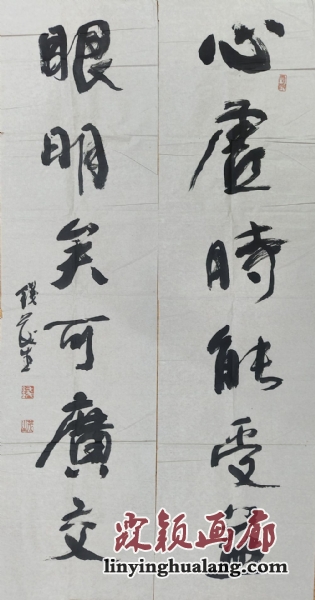 心虛時能受益
眼明矣可廣交
錢茂生
霖颖画廊
linyinghualang.com